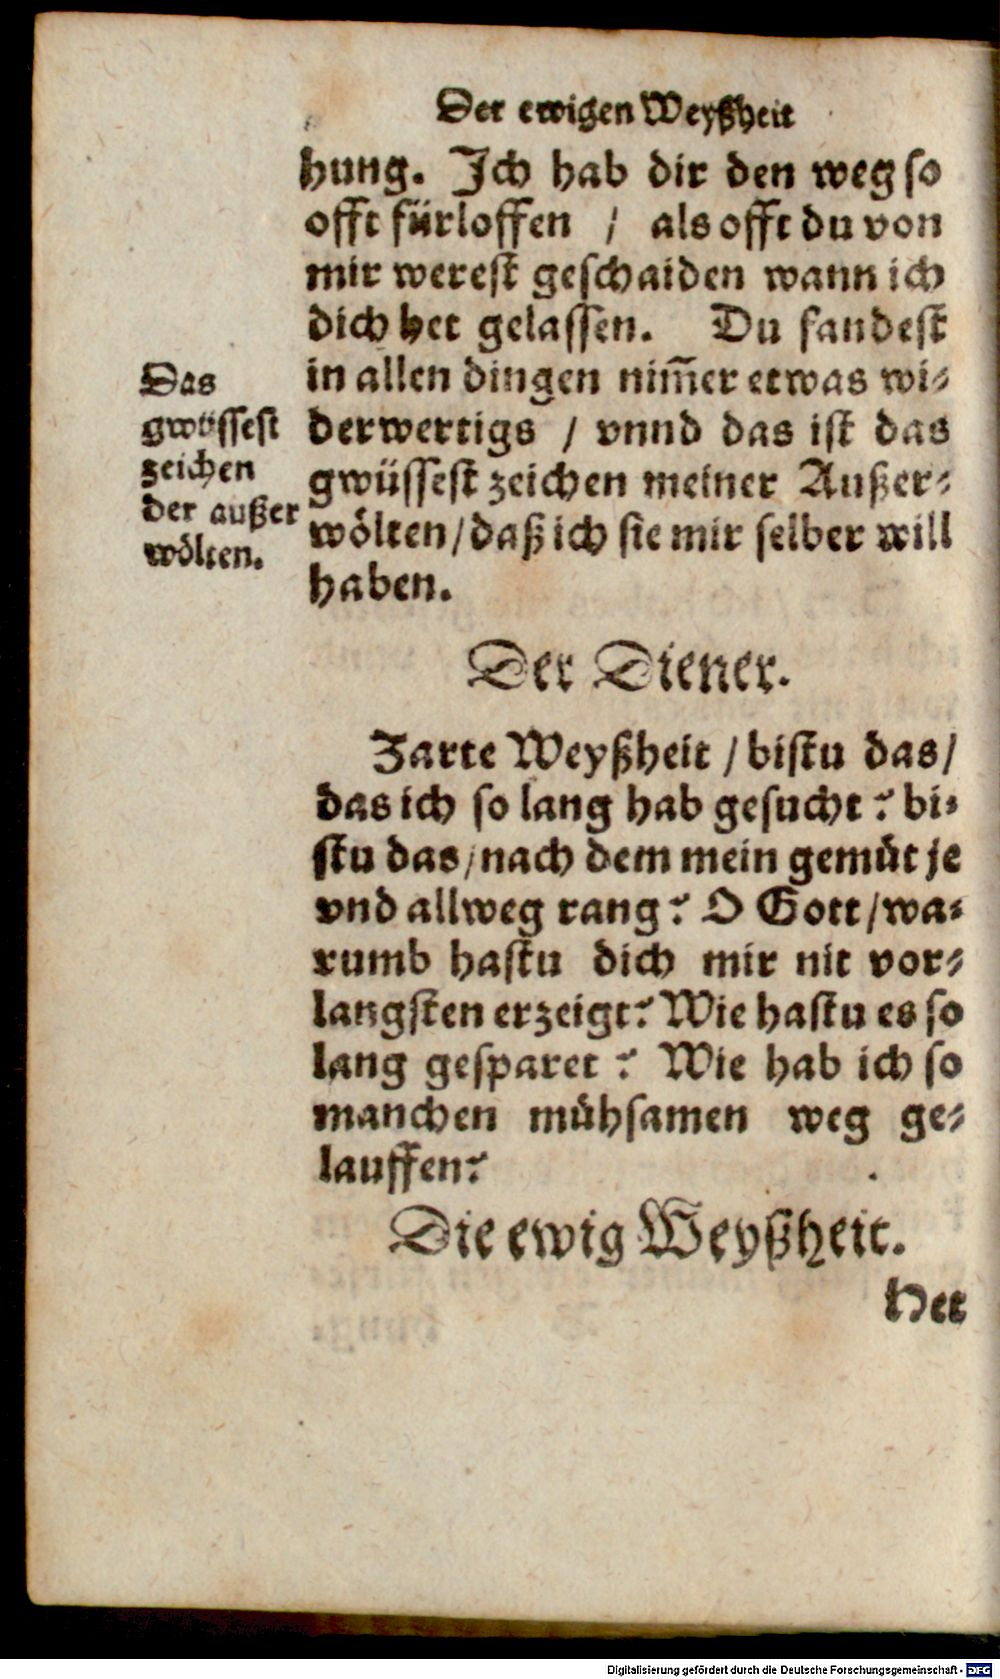 Der ewigen Weyßheit
hung. Ich hab dir den weg so
offt fürloffen / als offt du von
mir werest geschaiden wann ich
dich het gelassen. Du fandest
in allen dingen nim̃er etwas wi-
derwertigs / vnnd das ist das
gwüssest zeichen meiner Außer-
wölten / daß ich sie mir selber will
haben.
Das
gwüssest
zeichen
der außer
wölten.
Der Diener.
Zarte Weyßheit / bistu das /
das ich so lang hab gesucht? bi-
stu das / nach dem mein gemüt je
vnd allweg rang? O Gott / wa-
rumb hastu dich mir nit vor-
langsten erzeigt? Wie hastu es so
lang gesparet? Wie hab ich so
manchen mühsamen weg ge-
lauffen?
Die ewig Weyßheit.
Het
Digitalisierung gefördert durch die Deutsche Forschungsgemeinschaft - DFG